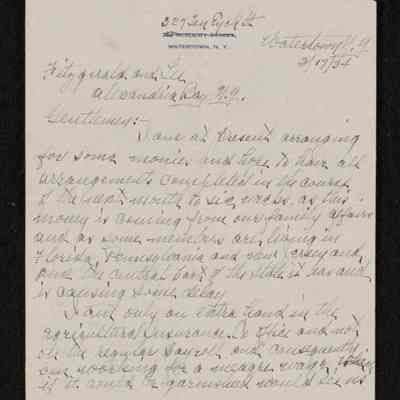 227 Ten Eyck St
WATERTOWN, N. Y.
Watertown N.Y.
2/17/35
Fitzgerald and Lee
Alexandria Bay N.Y.
Gentlemen:-
I am at present arranging
for some monies and hope to have all
arrangements completed in the course
of the next month to six weeks. as this
money is coming from our family affairs
and as some members are living in
Florida, Pennsylvania and New Jersey and
one the central part of the state it has and
is causing some delay
I am only an extra hand in the
Agricultural Insurance Co office and not
on the regular payroll and consequently
am working for a meagre wage, which
if it could be garnisheed would be no